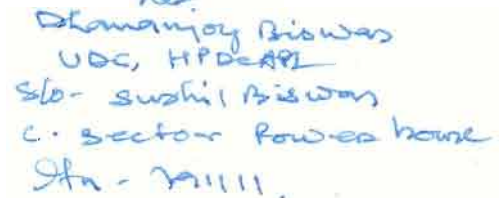 Dhananjoy Biswas
UDC, HPDCAPL
S/o - Sushil Biswas
C. Sector Power house
Itn - 791111.